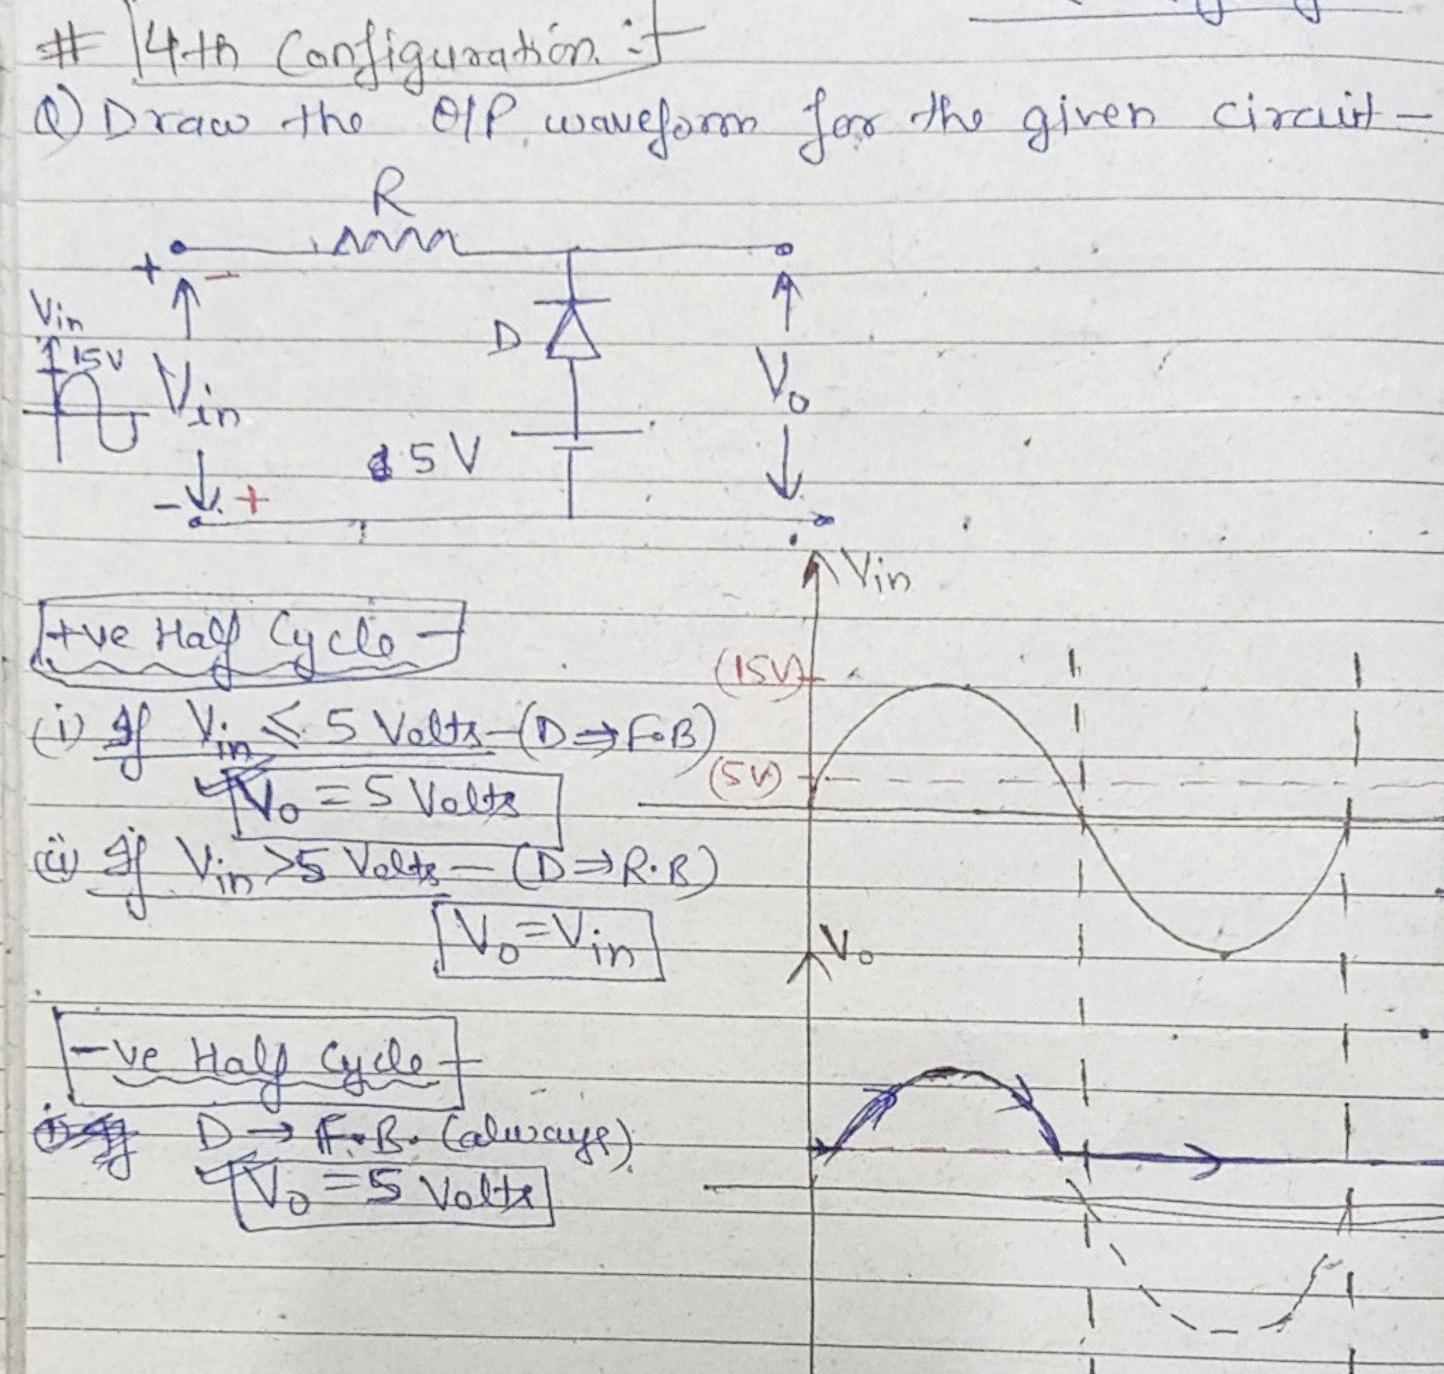 # 4th Configuration :-
Q) Draw the O/P waveform for the given circuit –
R
+ –
Vin
15V
D
Vin
Vo
5V
– +
Vin
+ve Half Cycle –
(15V)
(i) If Vin ≤ 5 Volts – (D ⇒ F.B)
(5V)
Vo = 5 Volts
(ii) If Vin > 5 Volts – (D ⇒ R.B)
Vo = Vin
Vo
-ve Half Cycle –
D → F.B. (always)
Vo = 5 Volts